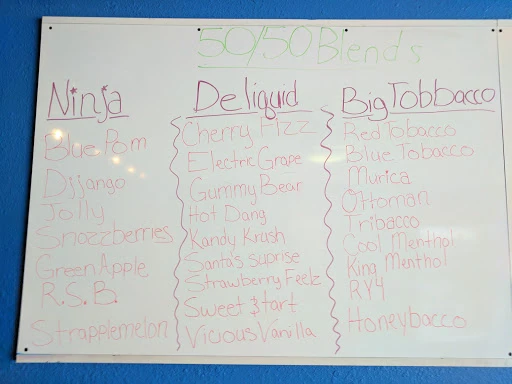 50/50 Blends
Ninja
Blue Pom
Dijango
Jolly
Snozzberries
Green Apple
R.S.B.
Strapplemelon
Deliquid
Cherry Fizz
Electric Grape
Gummy Bear
Hot Dang
Kandy Krush
Santa's suprise
Strawberry Feelz
Sweet $tart
Vicious Vanilla
Big Tobbacco
Red Tobacco
Blue Tobacco
Murica
Ottoman
Tribacco
Cool Menthol
King Menthol
RY4
Honeybacco